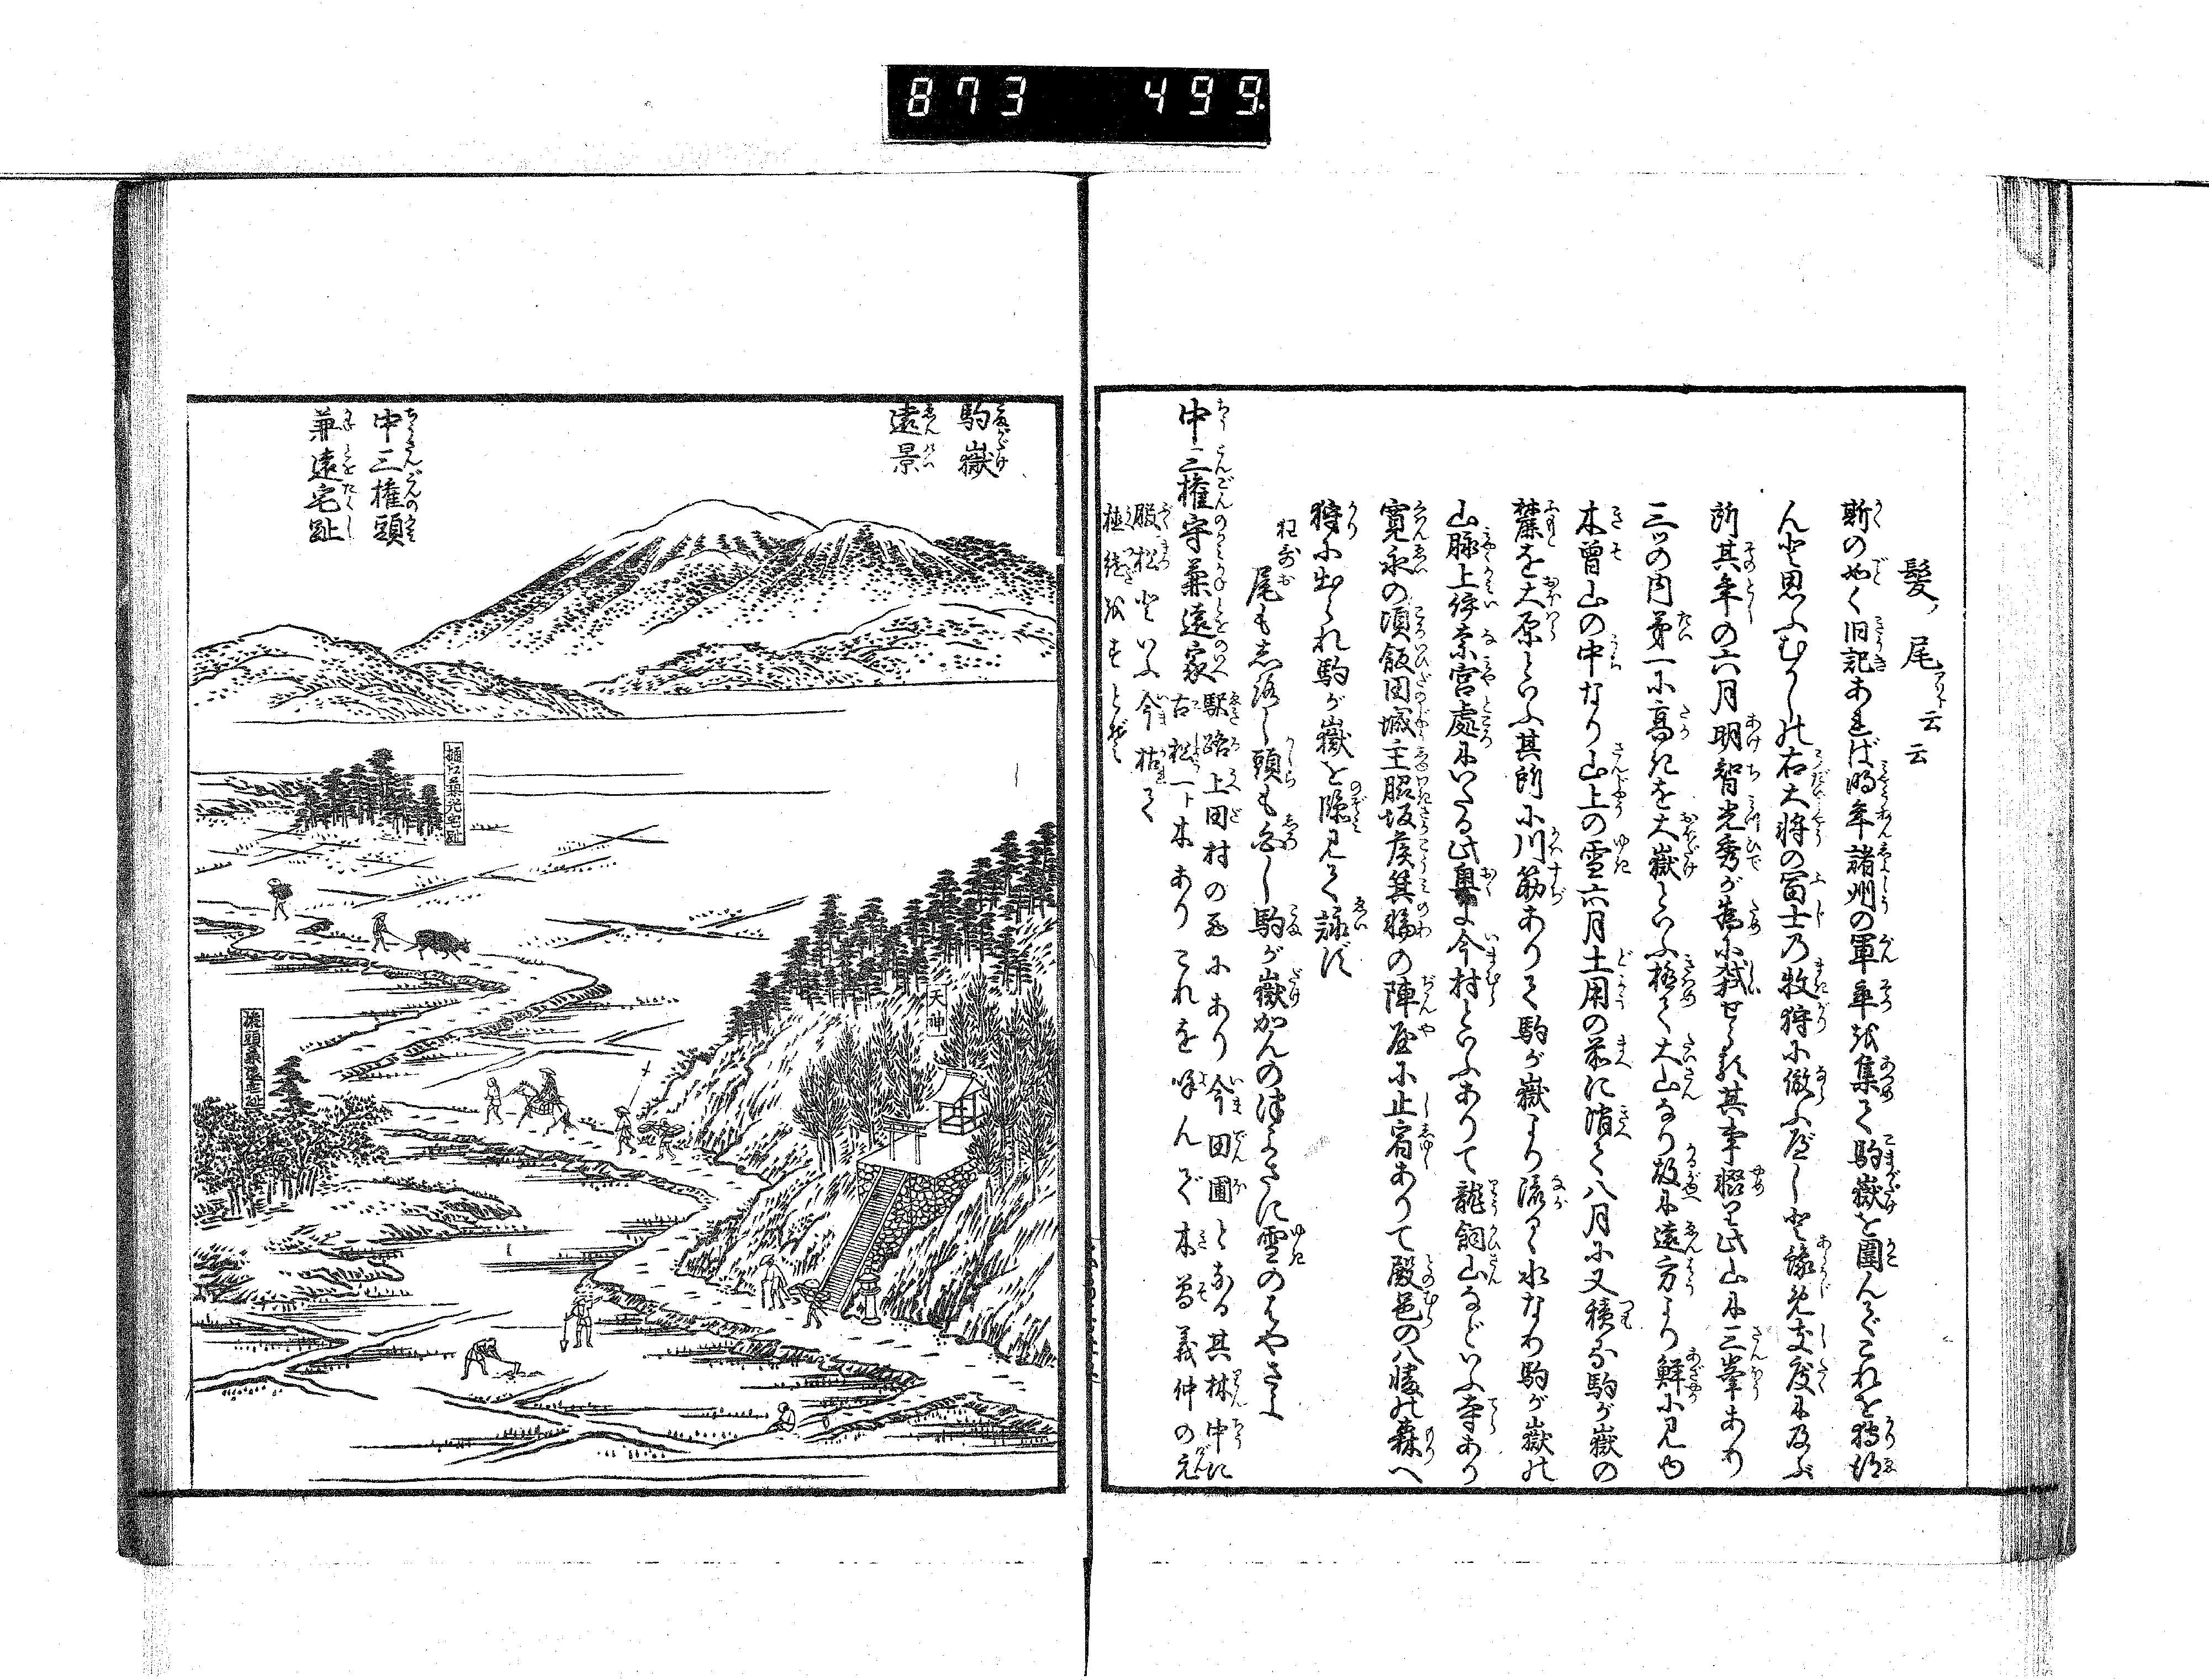 873 499
髪、尾アリト云云
斯の如く旧記あれば明年諸州の軍卒を集て駒嶽を圍んでこれを狩
んと思ふむかしの右大将の冨士乃牧狩に倣ふべしと豫め支度に及ぶ
所其年の六月明智光秀が為に弑せらる其事輟ぬ此山に三峯あり
三ッの内第一に高きを大嶽といふ極て大山なり故に遠方より鮮に見ゆ
木曽山の中なり山上の雪六月土用の前に消て八月に又積る駒が嶽の
麓を大原といふ其所に川筋あり駒が嶽より流るゝ水なり駒が嶽の
山脉上伊奈宮處にいたる此奥に今村といふありて龍飼山などいふ寺あり
寛永の頃飯田城主脇坂侯箕輪の陣屋に止宿ありて殿邑の八幡の森へ
狩に出られ駒が嶽を臨見て詠ず
狂哥
尾も志ろし頭も白し駒が嶽かんのつよさに雪のはやさよ
中三權守兼遠家
駅路上田村の西にあり今田圃となる其林中に
古松一ト木ありこれを呼んで木曽義仲の元
服松といふ今枯て
植継をすとぞ
駒嶽
遠景
中三權頭
兼遠宅趾
樋口兼光宅趾
天神
權頭兼遠宅趾